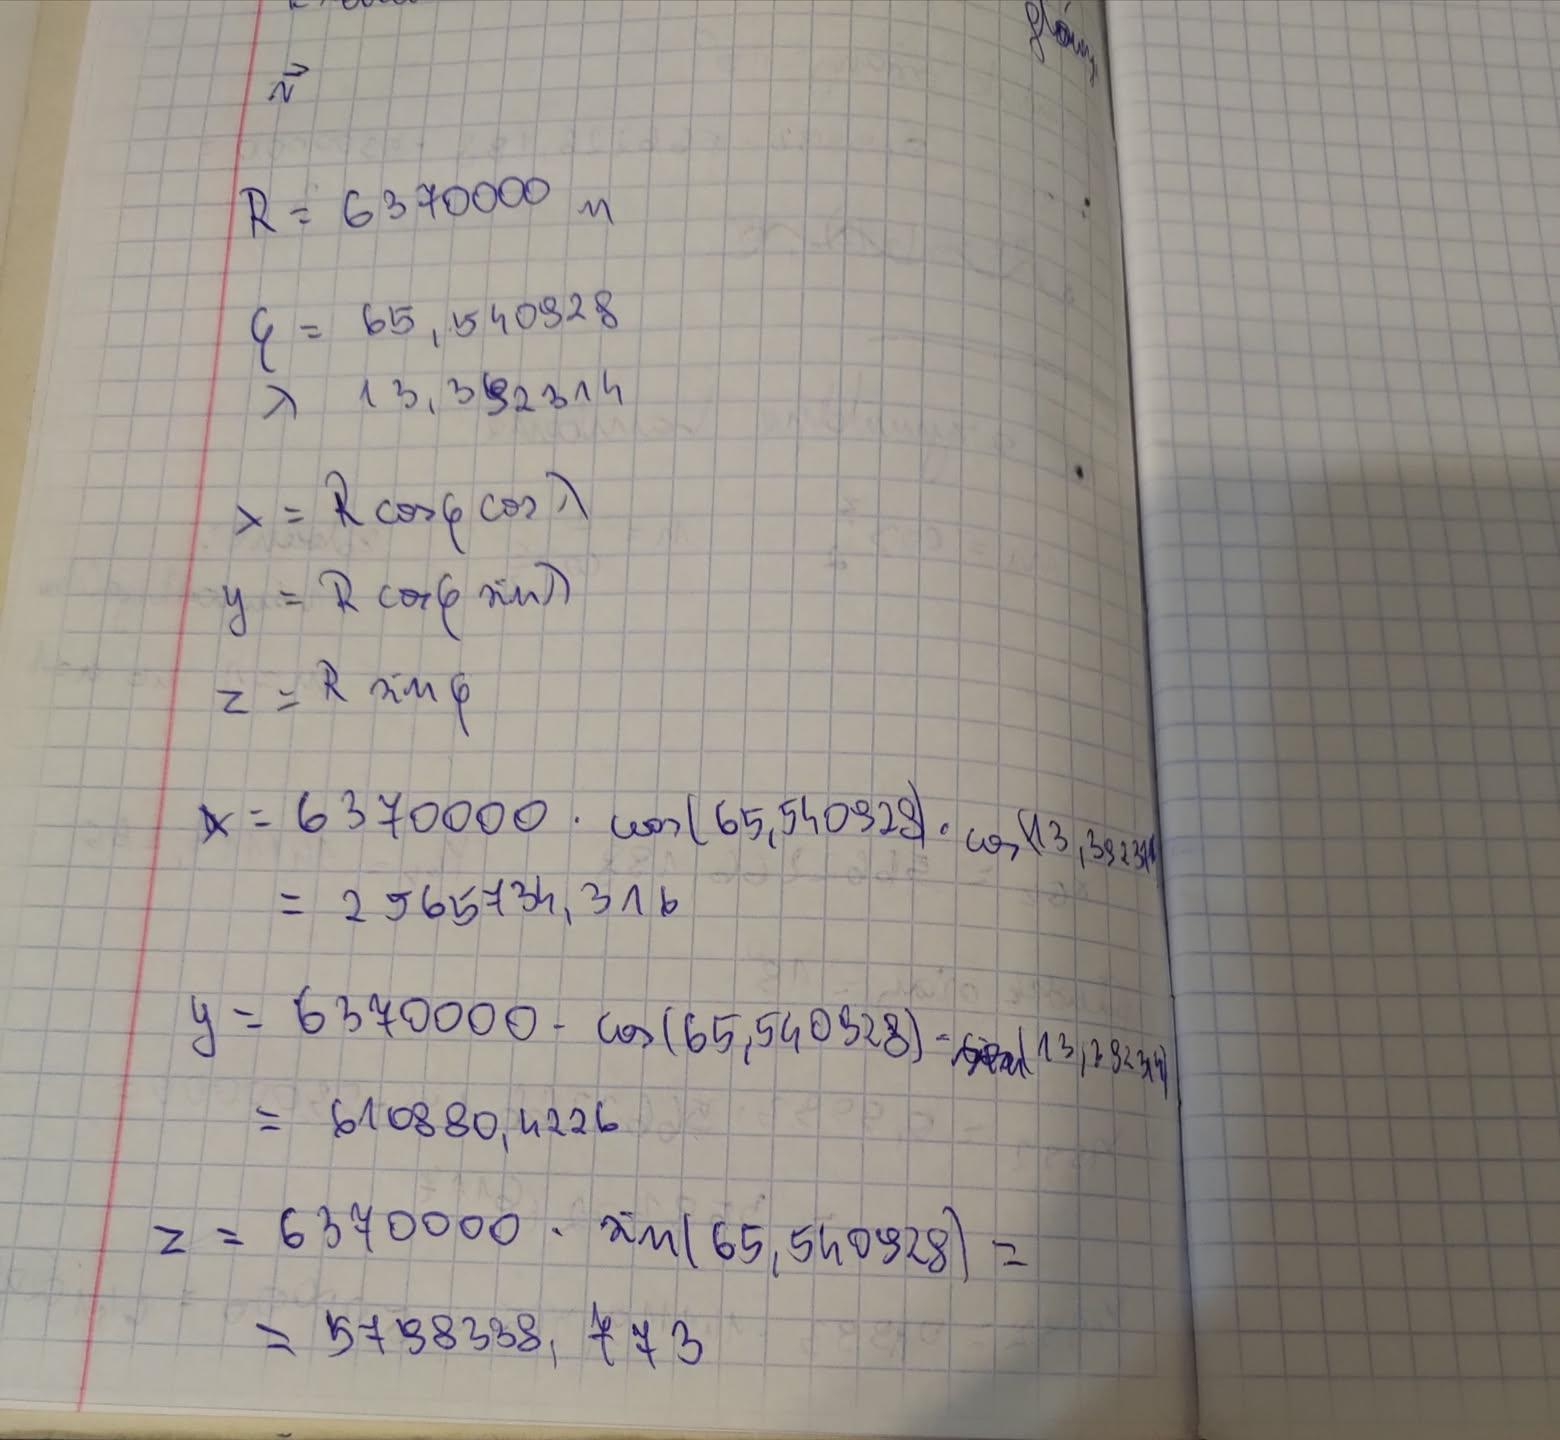 R = 6370000 m
φ = 65,540928
λ 13,392314
x = R cosφ cosλ
y = R cosφ sinλ
z = R sinφ
x = 6370000 · cos(65,540928) · cos(13,392314)
= 2565734,316
y = 6370000 - cos(65,540928) - sin(13,392314)
= 610880,4226
z = 6370000 · sin(65,540928) =
= 5798338,773